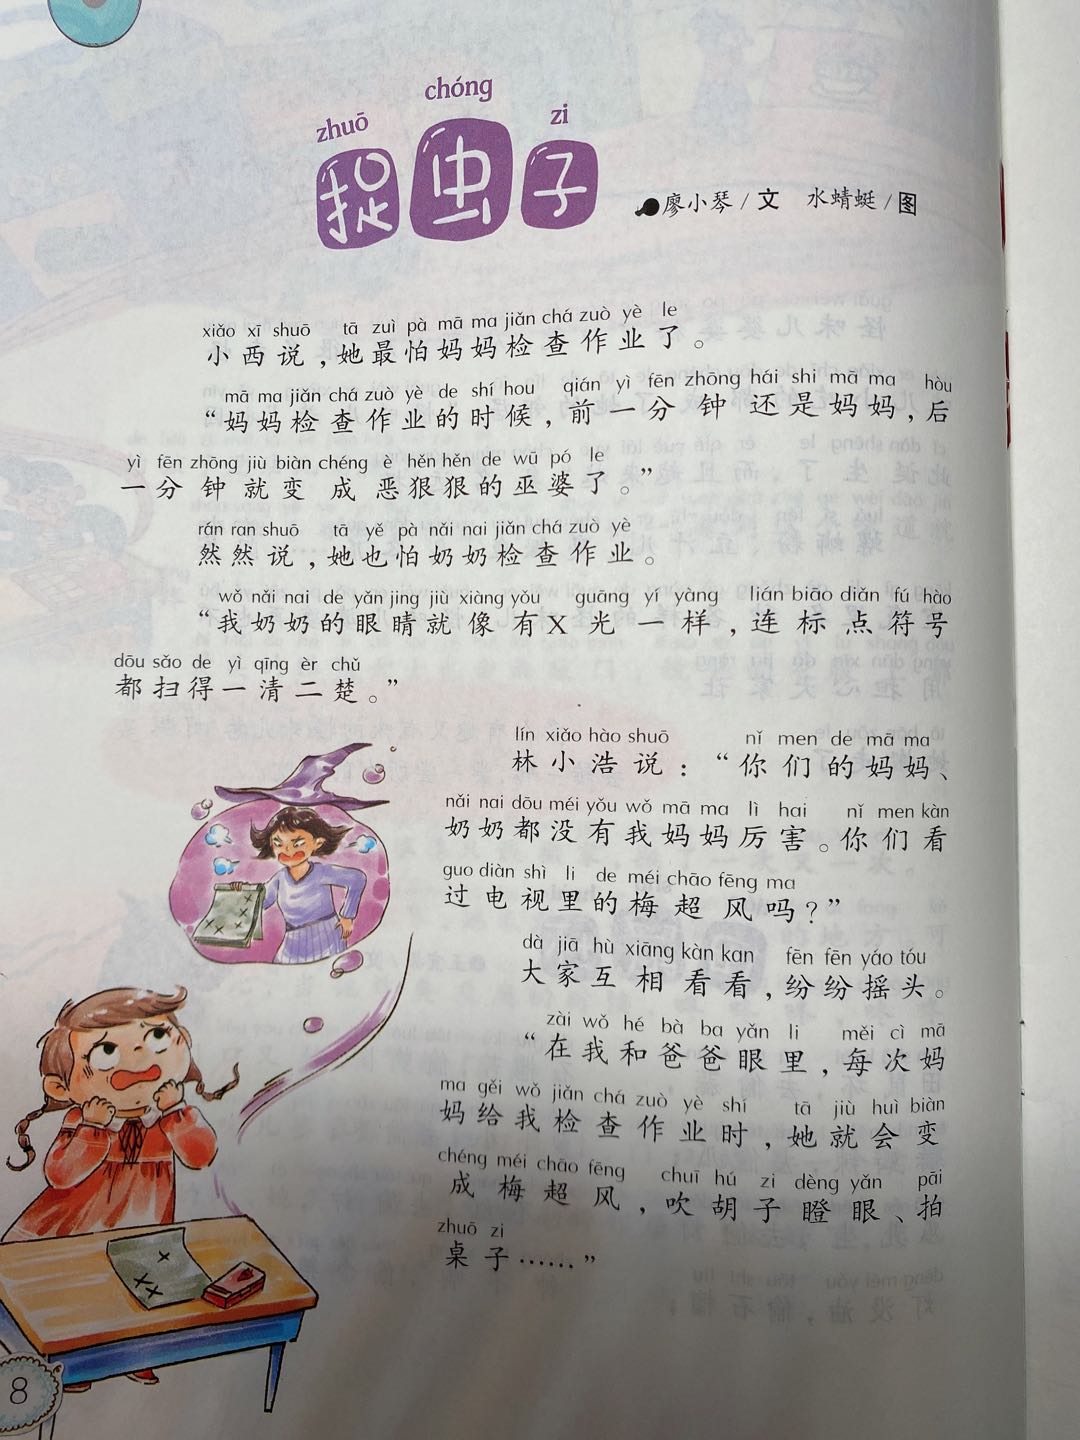 zhuō chóng zi
捉虫子
廖小琴/文 水蜻蜓/图
xiǎo xī shuō tā zuì pà mā ma jiǎn chá zuò yè le
小西说，她最怕妈妈检查作业了。
mā ma jiǎn chá zuò yè de shí hou qián yì fēn zhōng hái shi mā ma hòu
“妈妈检查作业的时候，前一分钟还是妈妈，后
yì fēn zhōng jiù biàn chéng è hěn hěn de wū pó le
一分钟就变成恶狠狠的巫婆了。”
rán ran shuō tā yě pà nǎi nai jiǎn chá zuò yè
然然说，她也怕奶奶检查作业。
wǒ nǎi nai de yǎn jing jiù xiàng yǒu guāng yí yàng lián biāo diǎn fú hào
“我奶奶的眼睛就像有X光一样，连标点符号
dōu sǎo de yì qīng èr chǔ
都扫得一清二楚。”
lín xiǎo hào shuō nǐ men de mā ma
林小浩说：“你们的妈妈、
nǎi nai dōu méi yǒu wǒ mā ma lì hai nǐ men kàn
奶奶都没有我妈妈厉害。你们看
guo diàn shì li de méi chāo fēng ma
过电视里的梅超风吗？”
dà jiā hù xiāng kàn kan fēn fēn yáo tóu
大家互相看看，纷纷摇头。
zài wǒ hé bà ba yǎn li měi cì mā
“在我和爸爸眼里，每次妈
ma gěi wǒ jiǎn chá zuò yè shí tā jiù huì biàn
妈给我检查作业时，她就会变
chéng méi chāo fēng chuī hú zi dèng yǎn pāi
成梅超风，吹胡子瞪眼、拍
zhuō zi
桌子……”
8